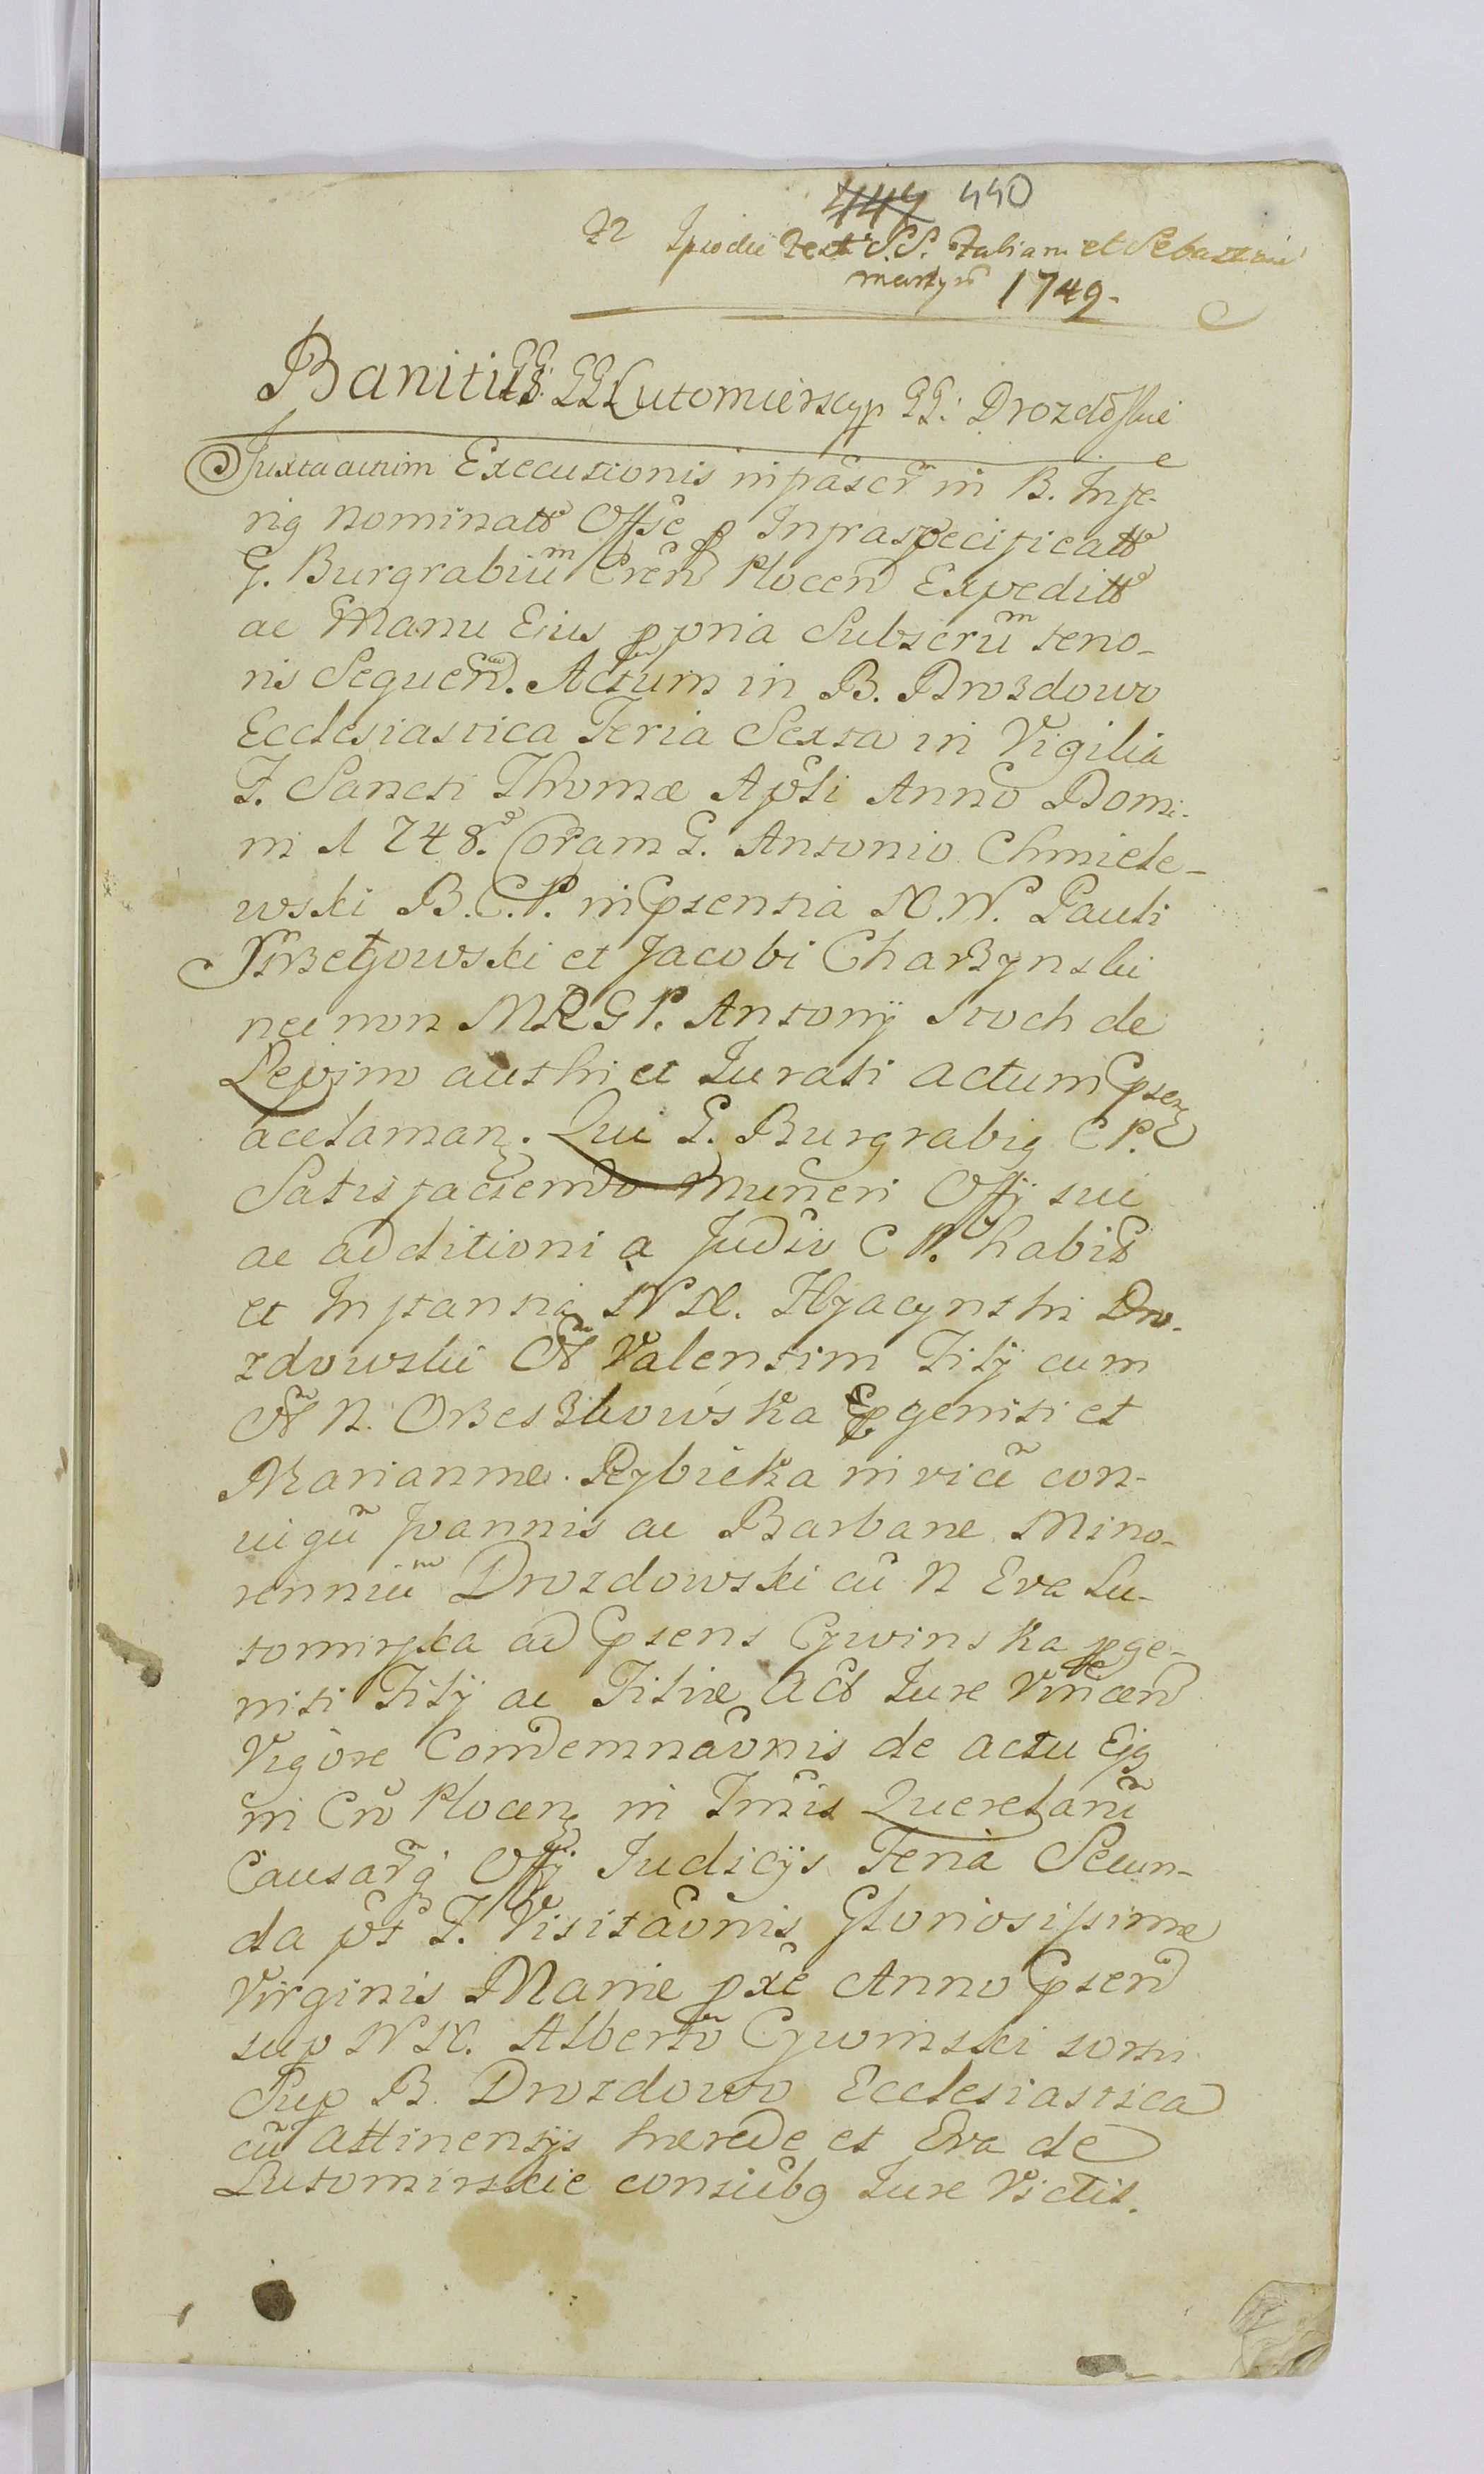 447 440
Ipso die Festi S.S. Fabiani et Sebastiani
martyrũ 1749.
Banitio GG Lutomierscy p GG: Drozdoskie
Juxta actum Executionis in pascr̃ in B. Infe-
rig nominatt Offse p Infraspecificatt
G. Burgrabium Cren Plocen Expeditt
ac Manu Eius ppria Subscrum teno-
ris Sequen. Actum in B. Drozdowo
Ecclesiastica Feria Sexta in Vigilia
F. Sancti Thomæ Apsli Anno Domi-
ni 1748. Coram G. Antonio Chmiele-
wski B.C.P. in Cpsentia N.N. Pauli
et Jacobi Charzynski
nec non MRGP. Antonij Stoch de
Lepino authi et Jurati actum Cpsen
acclaman. Qui G. Burgrabig C P.
Satisfaciendo muneri Offij sui
ac additioni a Judio C P. habit
et Instantia NN. Hyacynthi Dro-
zdowski Olt Valentini Filij cum
Olt N. Orzeszkowska pgeniti et
Marianna Rybicka invice con-
iugũ Joannis ac Barbaræ Mino-
renniũ Drozdowski cũ N Eva Lu-
tomirska ad Cpsens Cywinska pge-
niti Filij ac Filiæ Act Jure Vincen
Vigore Condemnaonis de actu Ejg
in Cro Plocen in Tmis Querelarũ
Causarq Offij Judicijs Feria Secun-
da pt F. Visitaonis Gloriosissimæ
Virginis Mariæ pxe Anno Cpsen
sup NN. Albertũ Cywinski sorti
Sup B. Drozdowo Ecclesiastica
cũ attinentijs hærede et Eva de
Lutomirskie coniubg Jure Victis.